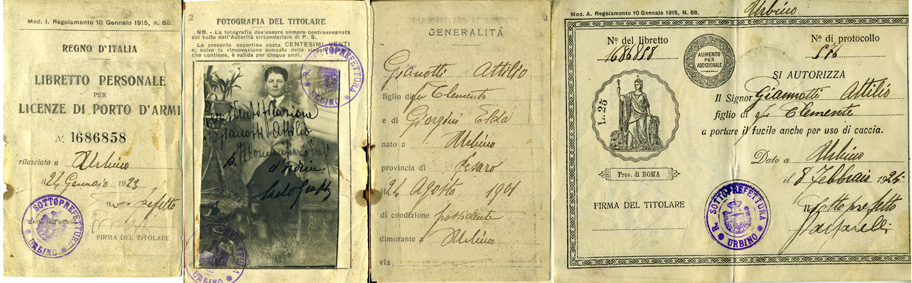 Mod. I. Regolamento 10 Gennaio 1915, n. 68.
REGNO D'ITALIA
LIBRETTO PERSONALE
PER
LICENZE DI PORTO D'ARMI
N. 1686858
rilasciato a Urbino
il 24 Gennaio 1923
R. SOTTOPREFETTURA
URBINO
FIRMA DEL TITOLARE
2
FOTOGRAFIA DEL TITOLARE
NB. - La fotografia dev'essere sempre contrassegnata
dal bollo dell'Autorità circondariale di P. S.
La presente sportina costa CENTESIMI VENTI
e, salva la rinnovazione annuale delle
che contiene, è valida per cinque anni.
R. SOTTOPREFETTURA
URBINO
Gianotti Attilio
3
GENERALITÀ
Gianotti Attilio
figlio di fu Clemente
e di Giorgini Elda
nato a Urbino
provincia di Pesaro
24 Agosto 1901
di condizione possidente
dimorante a Urbino
via
Mod. A. Regolamento 10 Gennaio 1915, N. 68.
Urbino
Nº del libretto
AUMENTO
PER
ADDIZIONALE
Nº di protocollo
L. 25
Prov. di ROMA
SI AUTORIZZA
Il Signor Giannotti Attilio
figlio di fu Clemente
a portare il fucile anche per uso di caccia.
Dato a Urbino
il 8 Febbraio 1924
FIRMA DEL TITOLARE
R. SOTTOPREFETTURA
URBINO
Il Sottoprefetto